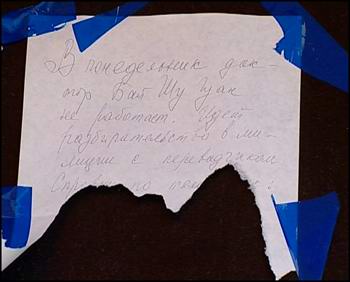 В понедельник док-
тор Бай Шу Цан
не работает. Идет
разбирательство в ми-
лиции с переводчиком
Справки по